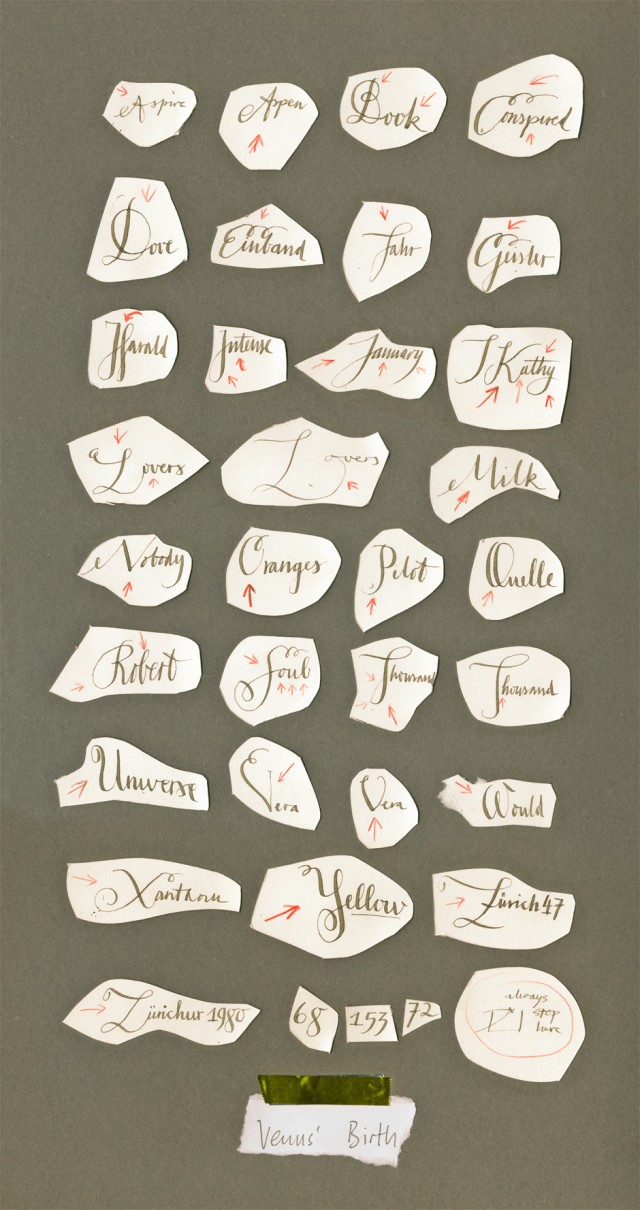 Aspire Aspen Book Conspired
Dove Einband Jahr Geister
Harald Intense January Kathy
Lovers Lovers Milk
Nobody Oranges Pilot Quelle
Robert Soul Thousand Thousand
Universe Vera Vera Would
Xanthorn Yellow Zürich 47
Züricher 1980 68 153 72
always
stop
here
Venus' Birth